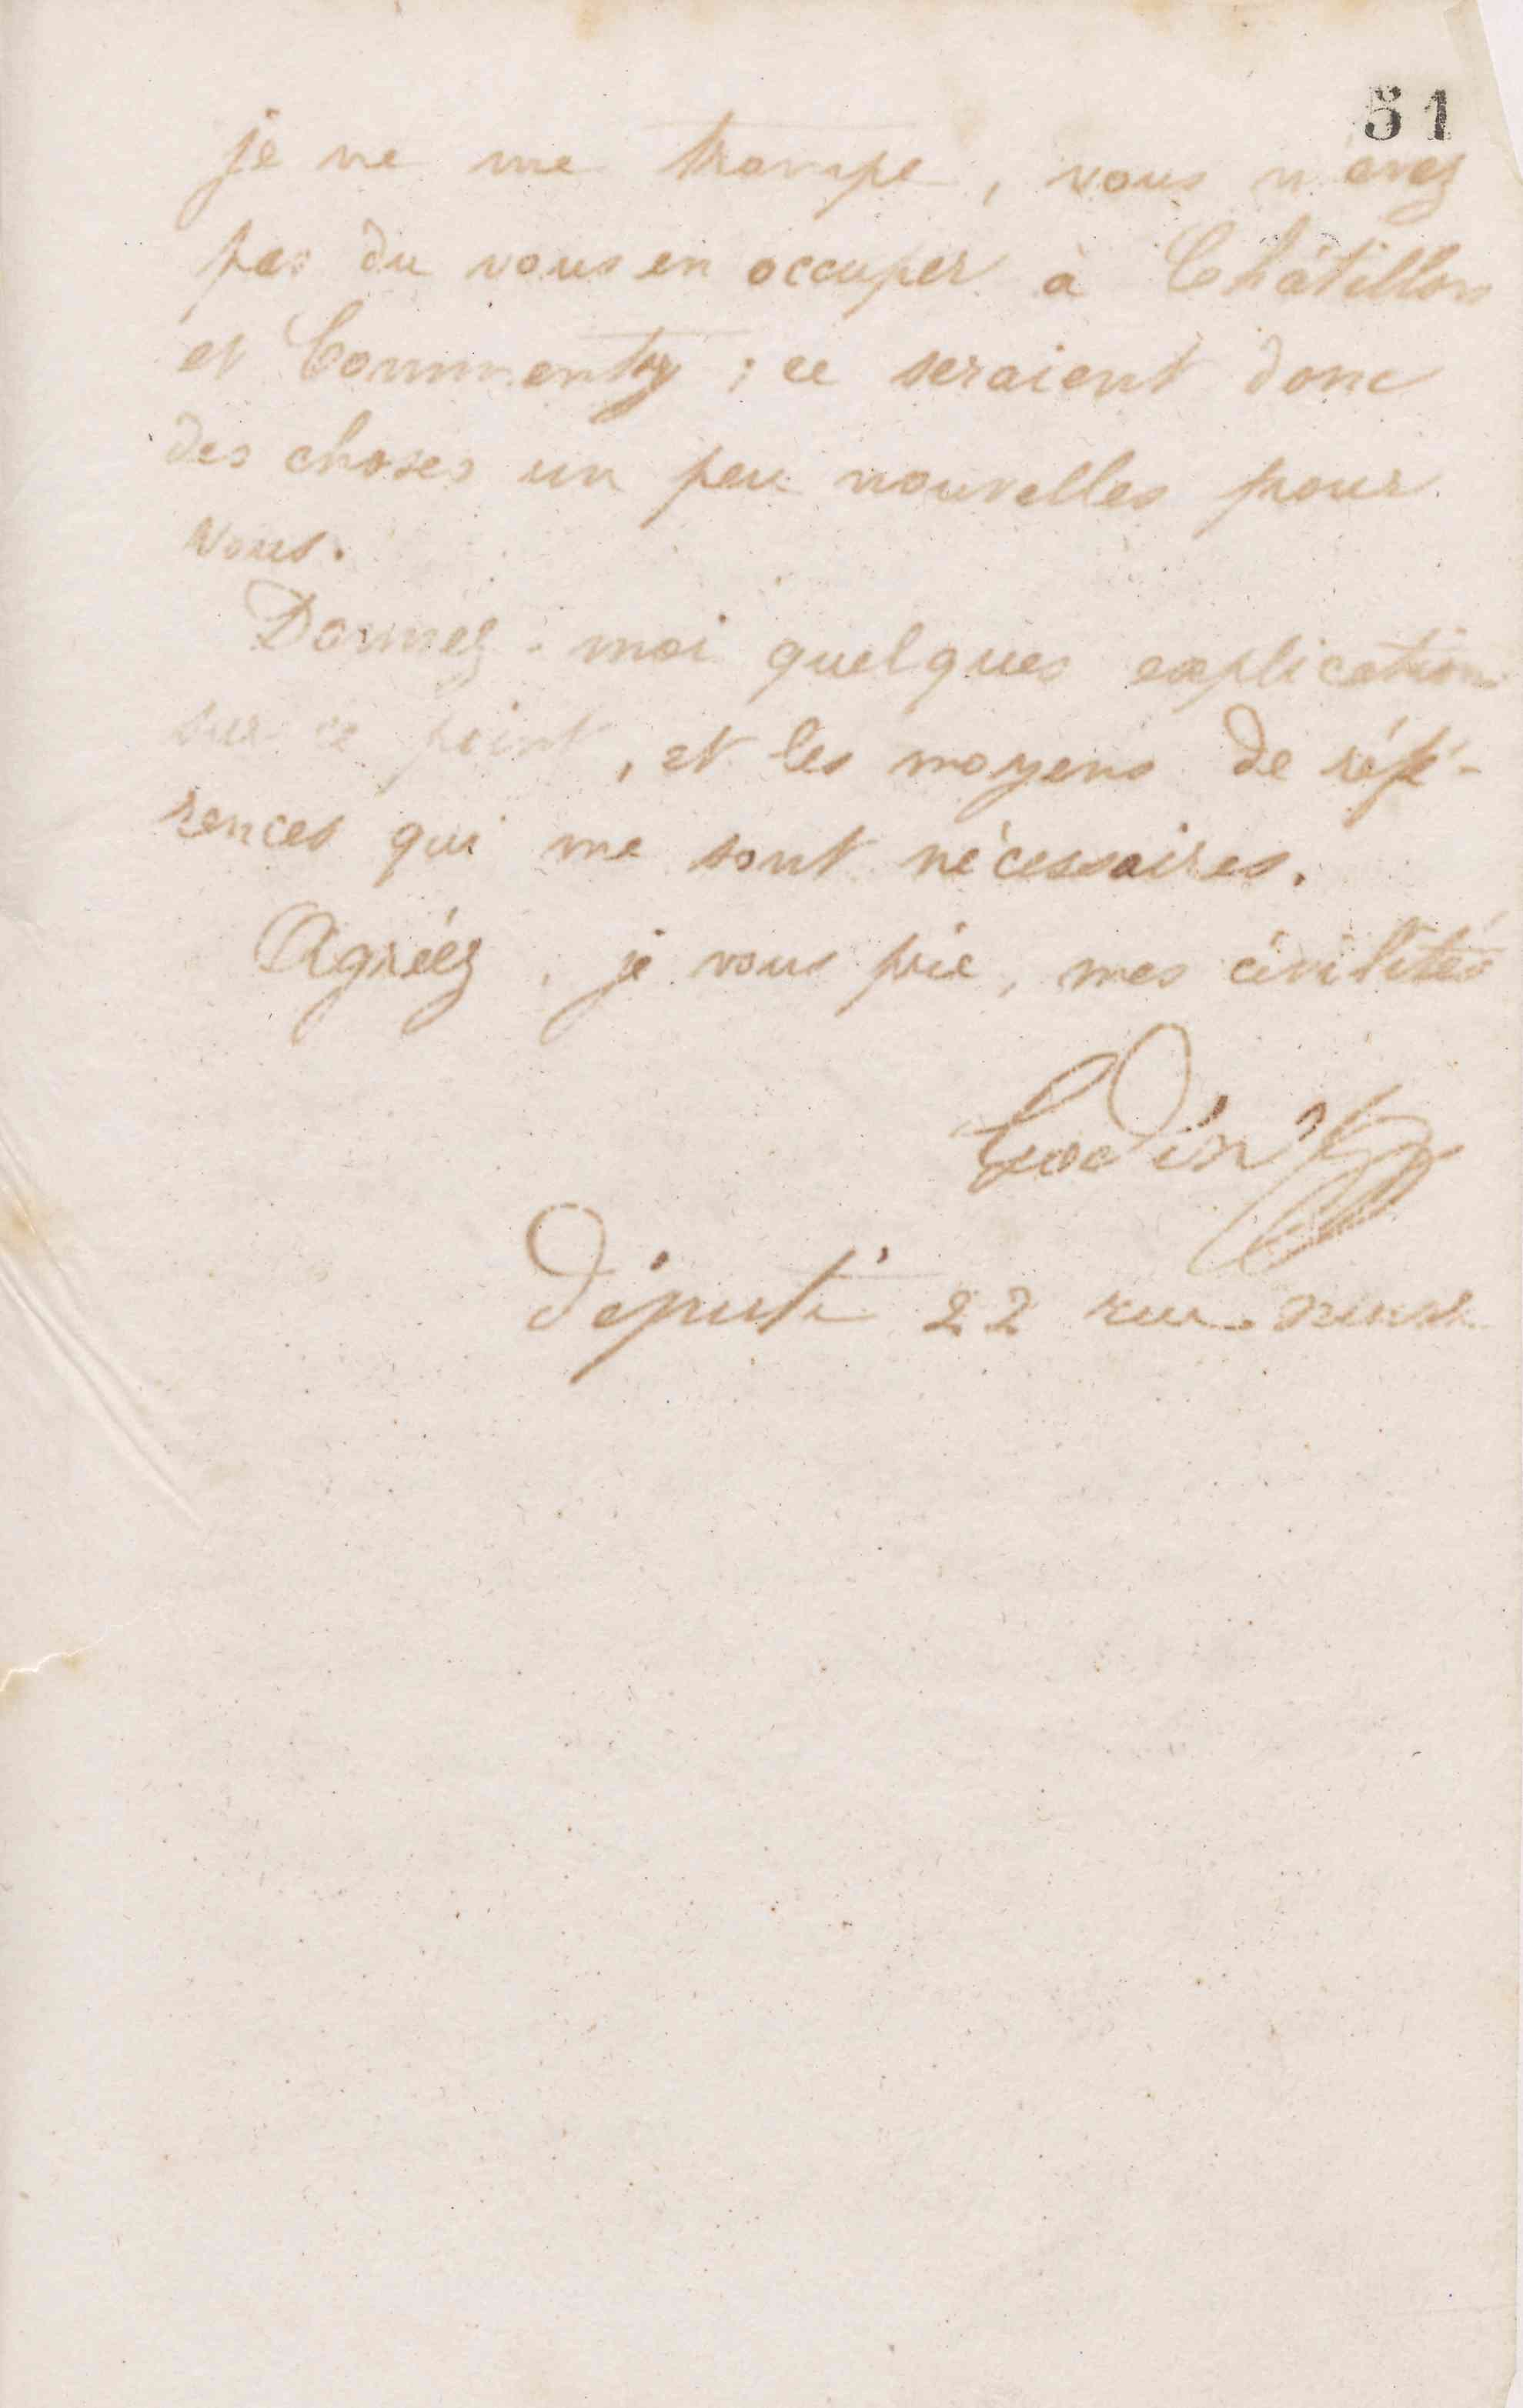 51
je ne me trompe, vous n'avez
pas du vous en occuper à Châtillon
et Commentry ; ce seraient donc
des choses un peu nouvelles pour
vous.
Donnez-moi quelques explications
sur ce point, et les moyens de réfé-
rences qui me sont nécessaires.
Agréez, je vous prie, mes civilités
Godin
Député 22 rue